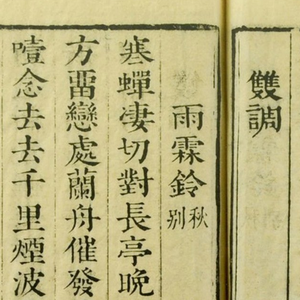 雙調
雨霖鈴秋别
寒蟬凄切對長亭晚
方畱戀處蘭舟催發
噎念去去千里煙波